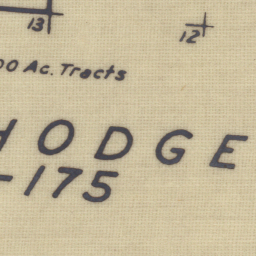 13
12
00 Ac. Tracts
HODGE
-175